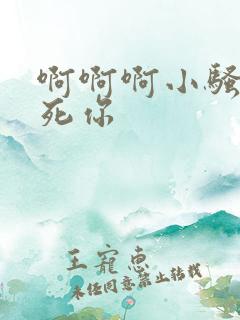 啊啊啊小骚
死你
王宠惠
未经同意禁止转载